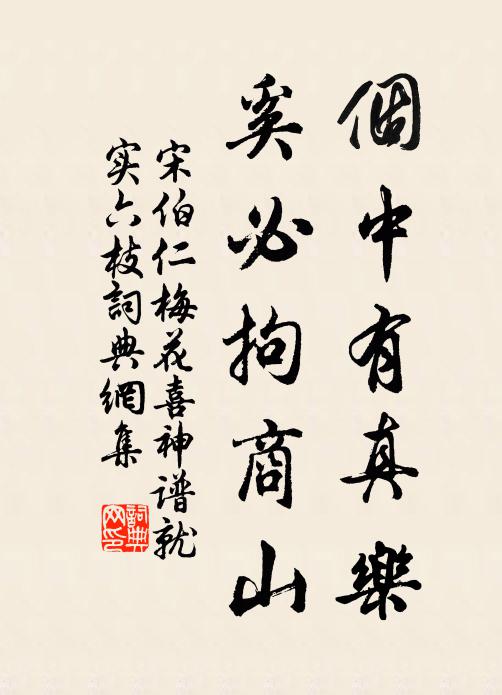 個中有真樂
奚必拘商山
宋伯仁梅花喜神谱就
实六枝詞典網集
詞典网印